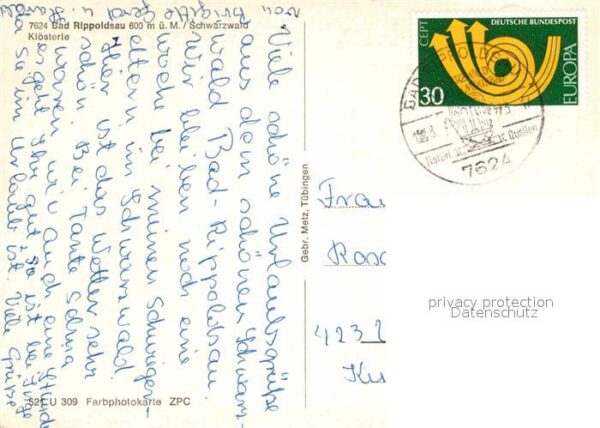 7624 Bad Rippoldsau 600 m ü. M. / Schwarzwald
Klösterle
Viele schöne Urlaubsgrüße
aus dem schönen Schwarz-
wald Bad-Rippoldsau.
Wir bleiben noch eine
Woche bei meinen Schwieger-
eltern im Schwarzwald.
Hier ist das Wetter sehr
schön. Bei Tante Selma
waren wir auch eine Stunde
es geht ihr gut, sie ist bei Inge
da sie im Urlaub ist. Viele Grüße
521 U 309 Farbphotokarte ZPC
Gebr. Metz, Tübingen
CEPT
DEUTSCHE BUNDESPOST
EUROPA
30
7624
Frau
Rose
423
privacy protection
Datenschutz